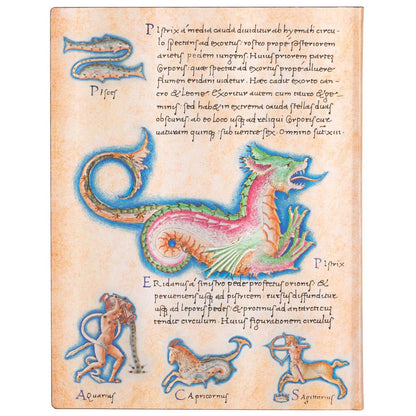 PIstrix a' media cauda diuiditur ab hyemali circu
lo spectans ad exortus rostro prope sesteriorem
arietis pedem iungens. Huius priorem partem
Corporis: quae spectat ad exortus prope alluere
flumen eridani uidetur. Haec cadit exorto can
cro & Leone. Exoritur autem cum tauro & ge
minis. sed habet in extrema cauda stellas duas
obscuras. ab eo loco usque ad reliqui Corporis cur
uaturam quinque: sub uentre sex. Omnino sunt xiii.
Pisces
Pistrix
ERidanus a' sinistro pede profectus orionis: &
perueniens usque ad pistricem. rursus diffunditur
usque ad leporis pedes: & protinus ad antarcticum
tendit circulum. Huius figurationem circulus
Aquarius
Capricornus
Sagittarius